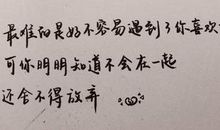 最难的是好不容易遇到了你喜欢
可你明明知道不会在一起
还舍不得放弃